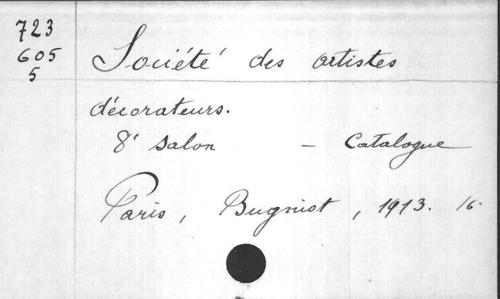 723
605
5
Société des artistes
décorateurs.
8e salon — Catalogue
Paris, Bugniot, 1913. 16.